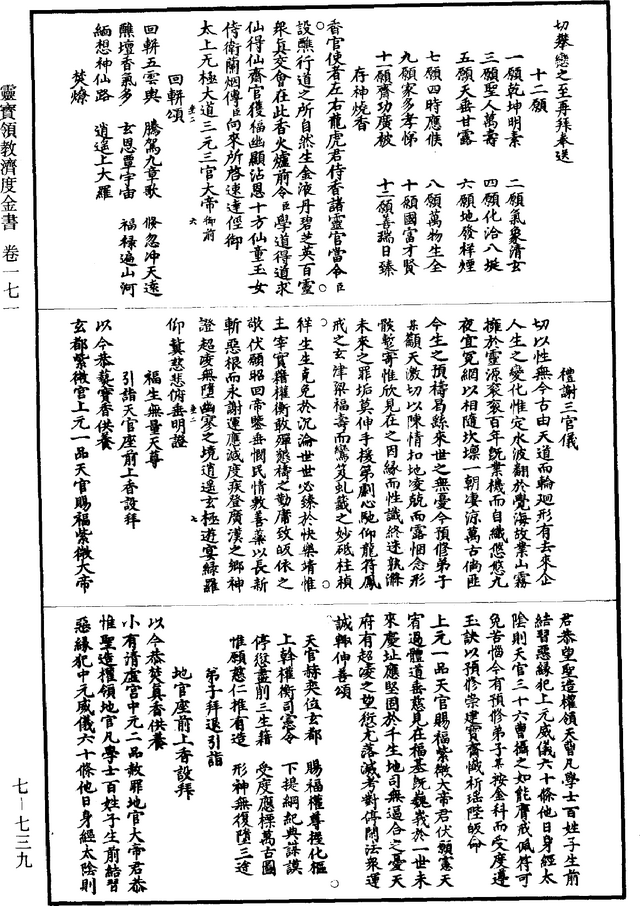 靈寶領教濟度金書 卷一七一
七—七三九
切攀戀之至再拜奉送
十二願
一願乾坤明素 二願氣象清玄
三願聖人萬壽 四願化洽八埏
五願天垂甘露 六願地發祥煙
七願四時應候 八願萬物生全
九願家多孝悌 十願國富才賢
十一願齋功廣被 十二願善瑞日臻
存神燒香
香官使者左右龍虎君侍香諸靈官當令臣
設醮行道之所自然生金液丹碧芝英百靈
衆真交會在此香火爐前令臣學道得道求
仙得仙齋官獲福幽顯沾恩十方仙童玉女
侍衛蘭煙傳臣向來所啓速達徑御
太上無極大道三元三官大帝御前
回軿頌
回軿五雲輿 騰駕九章歌 倏忽冲天遠
醮壇香氣多 玄恩覃宇宙 福祿遍山河
緬想神仙路 逍遙上大羅
焚燎
禮謝三官儀
切以性無今古由天道而輪迴形有去來企
人生之變化惟定水波翻於覺海故業山霧
擁於靈源衮衮百年旣業機而自織悠悠九
夜宜冤網以相隨坎壈一朝淒涼萬古倘匪
今生之預禱曷絲來世之無憂今預修弟子
某顒天激切以陳情扣地凌兢而露悃念形
骸塹寄惟欣見在之因緣而性識終迷孰滌
未來之罪垢莫伸手援第劇心馳仰龍符鳳
戒之玄津梁福壽而鸞笈虬籤之妙砥柱楨
祥生生克免於沉淪世世必臻於快樂靖惟
主宰實藉權衡敢殫懃禱之勤庸致皈依之
敬伏願昭回帝鑒垂憫民情敷善藥以長新
斬惡根而永謝運應減度疾登廣漢之鄉神
證超凌無墮幽寒之境逍遙玄極遊宴綠羅
仰冀慈悲俯垂明證
福生無量天尊
引詣天官座前上香設拜
以今恭爇寶香供養
玄都紫微宮上元一品天官賜福紫微大帝
君恭望聖造權領天曹凡學士百姓子生前
結習惡緣犯上元威儀六十條他日身經太
陰則天官三十六曹攝之如能膺戒佩符可
免苦惱今有預修弟子某按金科而受度遵
玉訣以預修崇建寶齋懴祈瑤陛皈命
上元一品天官賜福紫微大帝君伏願憲天
宥過體道垂慈見在福基旣巍峩於一世未
來慶址應堅固於千生地司無逼合之憂天
府有超凌之望愆尤落滅考對停閉法衆運
誠輙伸善頌
天官赫奕位玄都 賜福權尊橐化樞
上幹權衡司憲令 下提綱紀典謀謨
停愆盡前三生籍 受度應標萬古圖
惟願慈仁推有造 形神無復墮三途
弟子拜退引詣
地官座前上香設拜
以今恭焚真香供養
小有清虛宮中元二品赦罪地官大帝君恭
惟聖造權領地官凡學士百姓子生前結習
惡緣犯中元威儀六十條他日身經太陰則